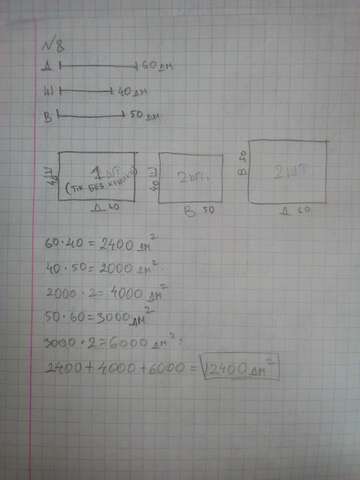 №8
Д 60 дм
Ш 40 дм
В 50 дм
Ш 40 1 шт. (ТК БЕЗ
Д 60
Ш 40 2 шт.
В 50
В 50 2 шт
Д 60
60·40=2400 дм²
40·50=2000 дм²
2000·2=4000 дм²
50·60=3000 дм²
3000·2=6000 дм²
2400+4000+6000=12400 дм²